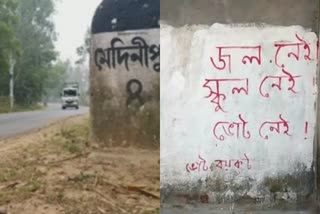 মেদিনীপু
৪
জল নেই
স্কুল নেই
ভোট নেই!
ভোট বয়কট